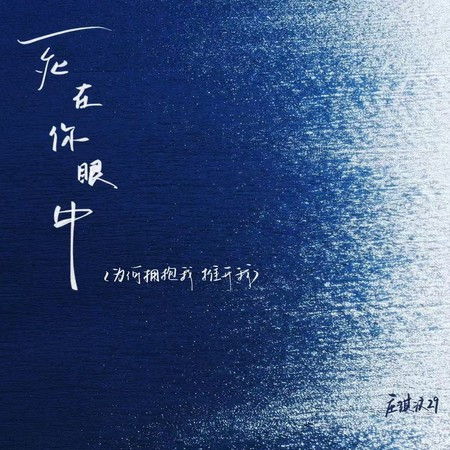 死在你眼中
(为何拥抱我 推开我)
庄淇文29